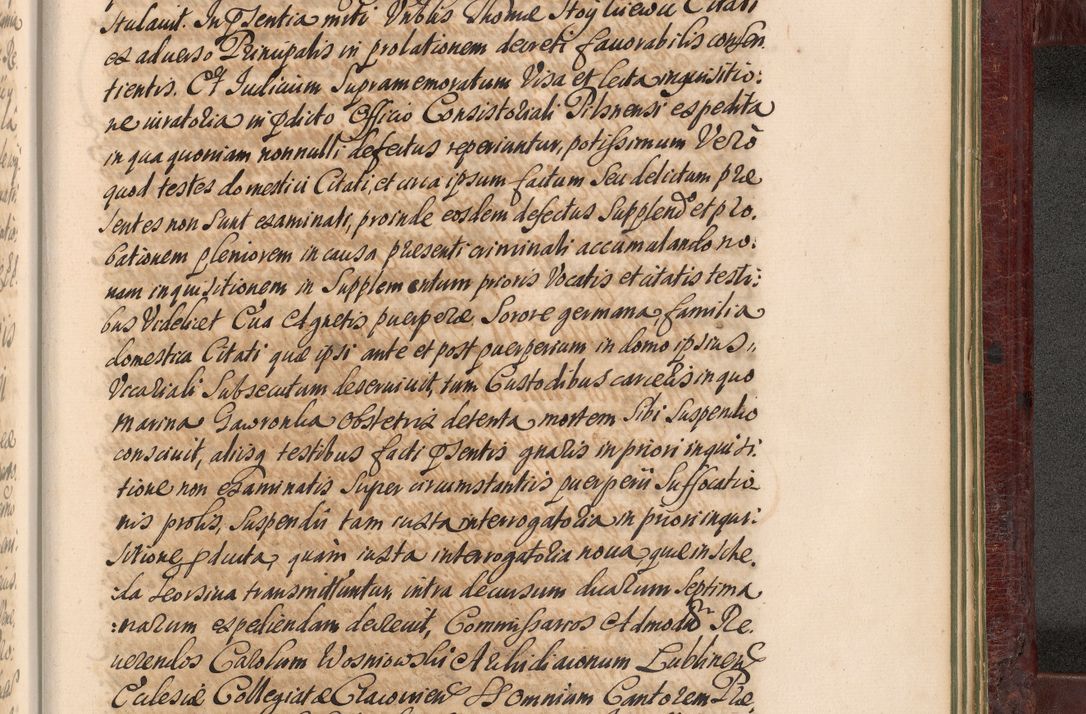 stulavit. In pſentia mti Vrbās Thomæ Citati
ex adverso Principalis in prolationem decreti favorabilis consen
tientis. Et Iudicium Supramemoratum Visa et lecta inquisitio:
ne iuratoria in pdicto Officio Consistoriali Pilsnensi expedita
in qua quoniam nonnulli defectus reperiuntur, potissimum Verò
quod testes domestici Citati, et circa ipsum factum Seu delictum præ
sentes non Sunt examinati, proinde eosdem defectus Supplendo et pro.
bationem pleniorem in causa præsenti criminali accumulando no:
uam inquisitionem in Supplementum prioris Vocatis et citatis testi:
bus Videlicet Eua et Agnetis puerperæ Sorore germana, familia
domestica Citati quæ ipsi ante et post puerperium in domo ipsius,
Vicariali Subsecutam deseruiuit, tum Custodibus carceris in quo
Marina Gawronka Obstetrix detenta mortem Sibi Suspendio
consciuit, aliisq testibus facti pſentis gnaris in priori inquisi:
tione non examinatis Super circumstantiis puerperii Suffocatio
nis prolis, Suspendii tam iuxta interrogatoria in priori inqui:
sitione pducta, quàm iuxta interrogatoria noua, quæ in sche.
:da seorsiua transmittuntur, intra decursum duarum septima
:narum expediendam decreuit, Commissarios Admodū Re.
uerendos Carolum Wosniowski Archidiaconum Lublinen
Ecclesiæ Collegiatæ Cracouien SS Omnium Cantorem Præ,